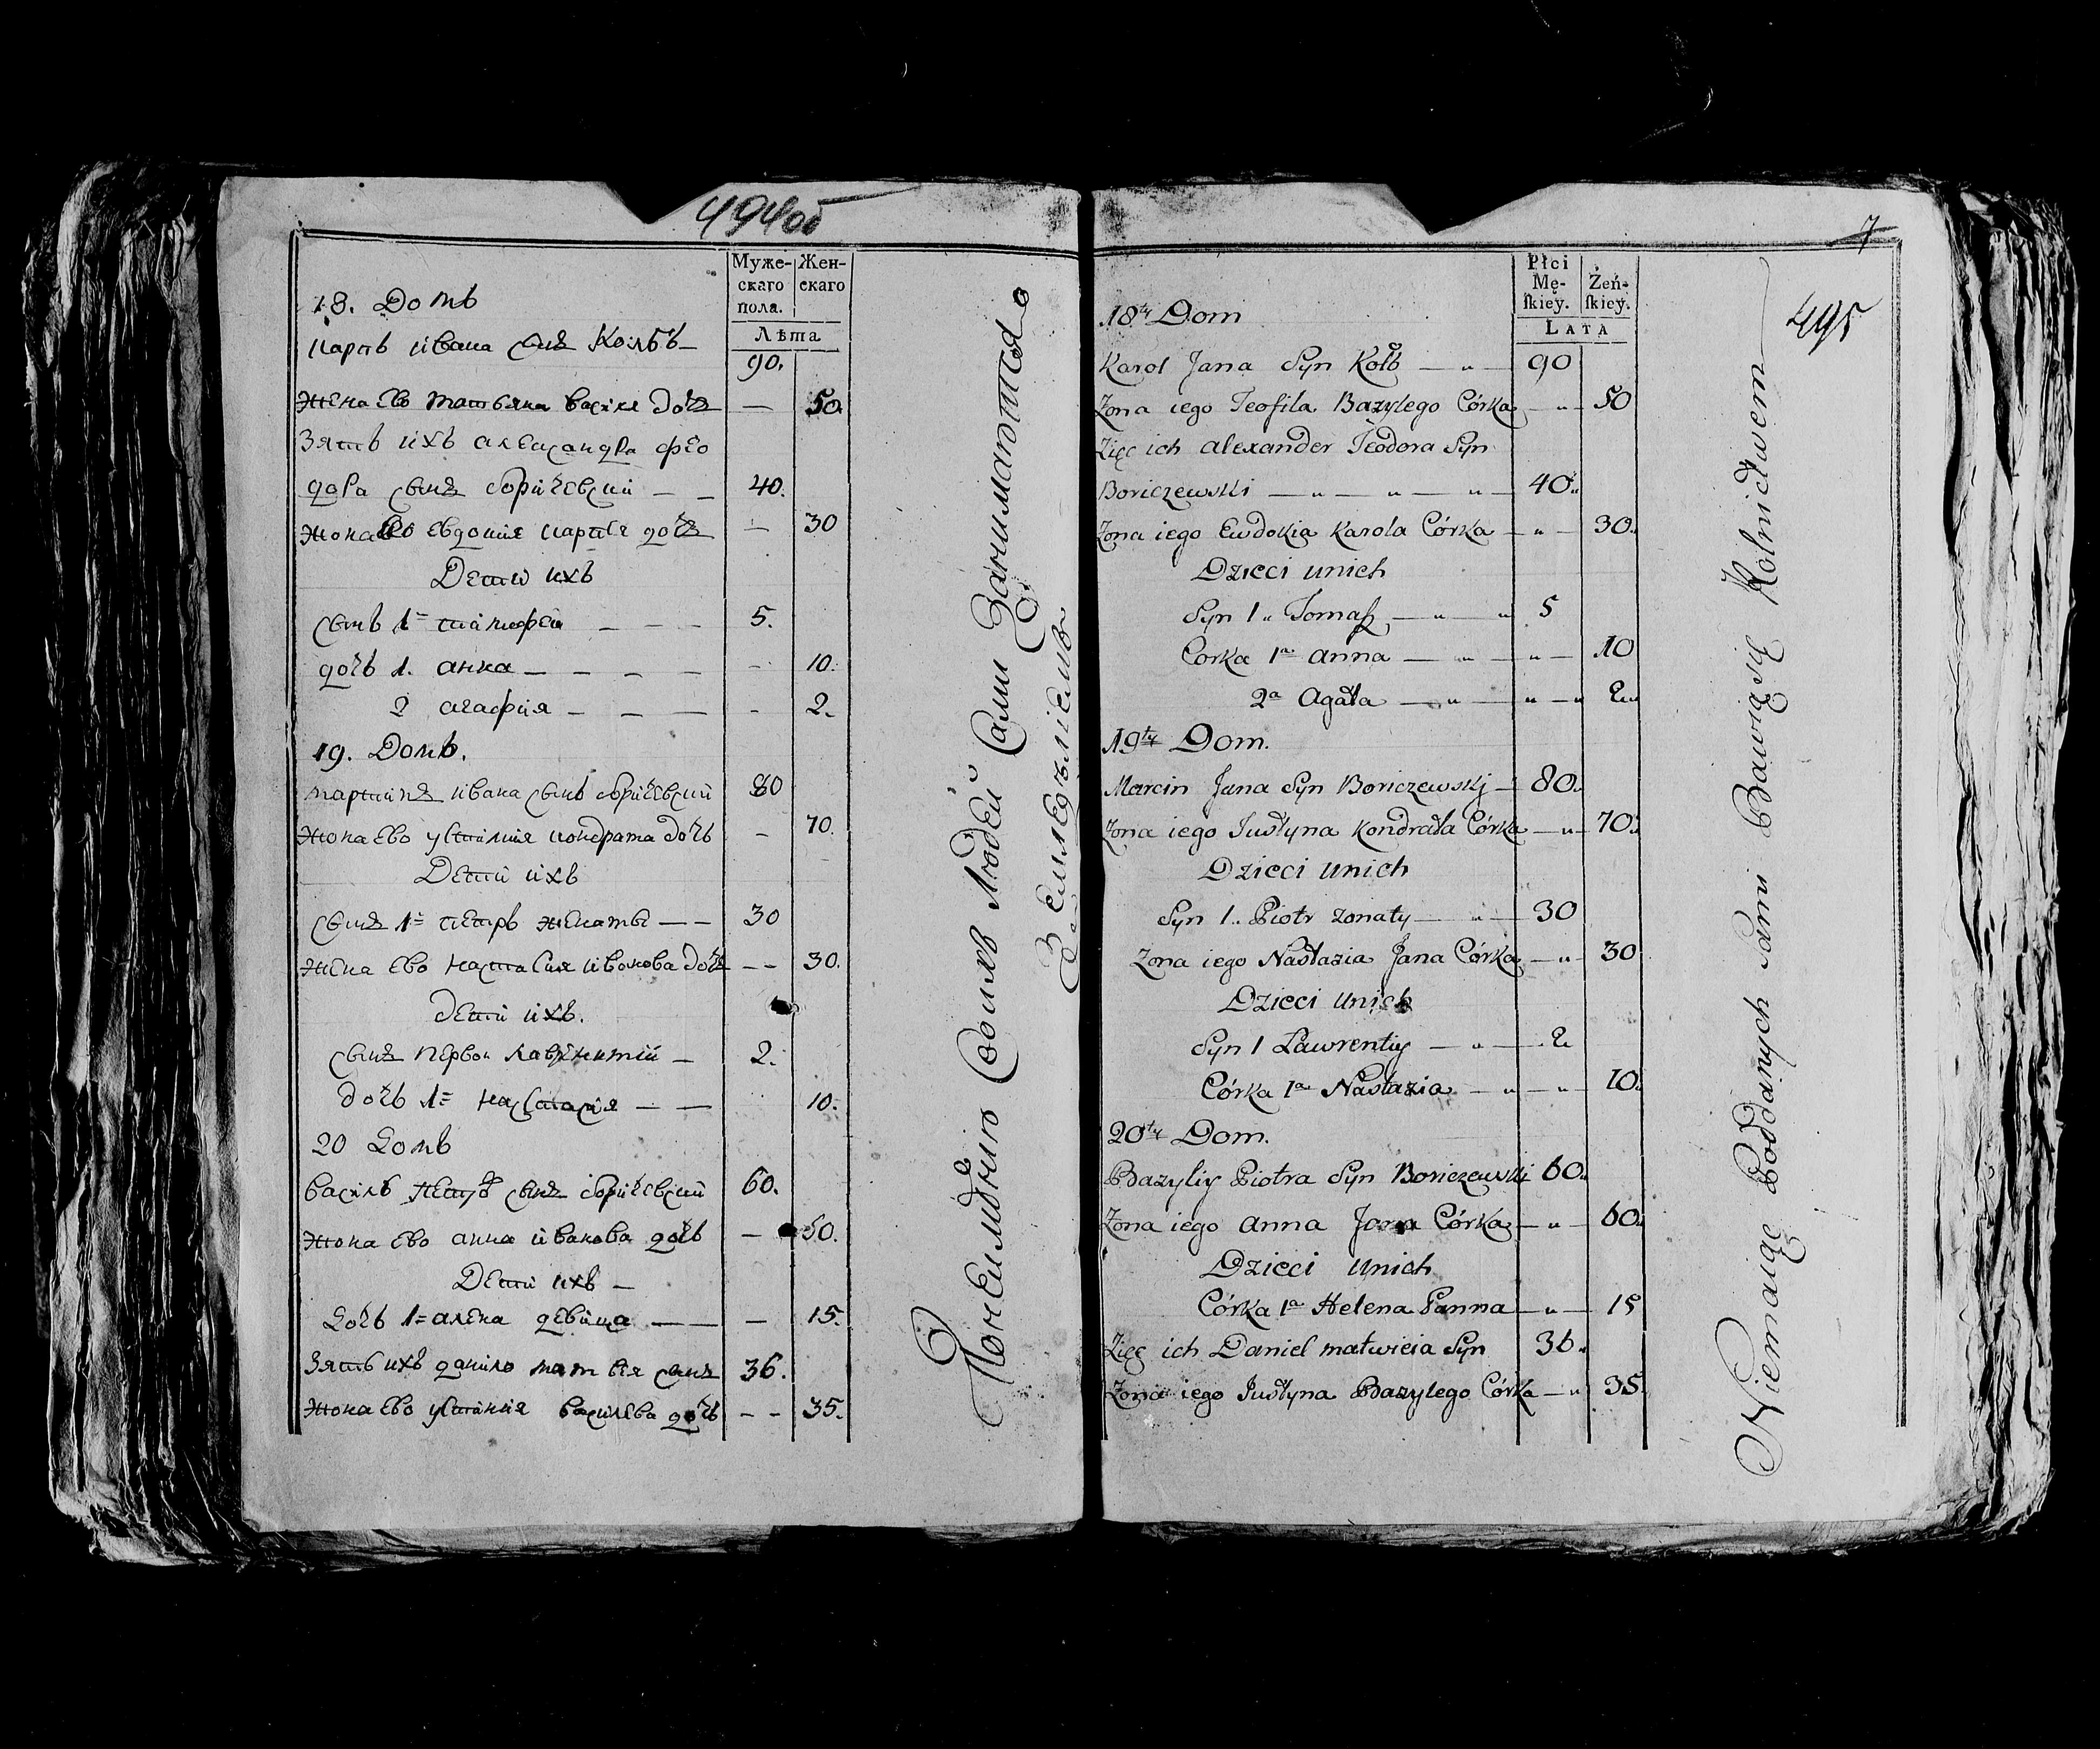 494об
Муже-скаго пола. Жен-скаго
Лѣта
18. Домъ
карпъ ивана сынъ Колбъ 90.
жена ево татьяна васіля дочъ — 50.
Зять ихъ александра фео
дора сынъ боричевский — — 40.
жона ево евдокия карпа дочъ — 30
Дети ихъ
сынъ 1 тимофей — — — 5.
дочь 1. анна — — — — 10.
2 агафия — — — 2.
19. Домъ.
мартинъ ивана сынъ боричевский 80
жона ево устиния кондрата дочь — 70.
Дети ихъ
сынъ 1 петръ женаты — — 30
жена ево настасия иванова дочъ — — 30.
дети ихъ.
сынъ первои лаврентий — 2.
дочь 1 настасия — — 10.
20 Домъ
василь петра сынъ боричевский 60.
жона ево анна иванова дочь — 60.
Дети ихъ —
дочь 1 алена девица — — — 15.
Зять ихъ данило матвея сынъ 36.
жона ево устиния васильева дочь — — 35.
Понеимѣнию Собмев Людей Сами Занимаются
Земледѣлиемъ
7
495
Płci Mę-ſkiey. Żeń-ſkiey.
LATA
18ty Dom
Karol Jana Syn Kołb — „ — 90
Zona iego Teofila Bazylego Córka — „ — 50
Zięc ich Alexander Teodora Syn
Boriczewski — „ — „ — „ — 40„
Zona iego Ewdokia Karola Córka — „ — 30„
Dzieci unich
Syn 1„ Tomaſz — „ — „ 5
Corka 1a Anna — „ — „ — 10
2a Agata — „ — „ — „ 2„
19ty Dom.
Marcin Jana Syn Boriczewskj — 80„
Zona iego Justyna Kondrata Córka — „ — 70„
Dzieci unich
Syn 1„ Piotr zonaty — „ — 30
Zona iego Nastazia Jana Córka — „ — 30
Dzieci unich
Syn 1 Lawrentiy — „ — 2
Córka 1a Nastazia — „ — „ — 10„
20ty Dom.
Bazyliy Piotra Syn Boriczewskj 60„
Zona iego Anna Jana Córka — „ — 60„
Dzieci unich
Córka 1a Helena Panna — „ — 15
Zięc ich Daniel Matwieia Syn 36„
Zona iego Justyna Bazylego Córka — „ 35
Niemaiąc Poddanych Sami Bawią się Rolnictwem